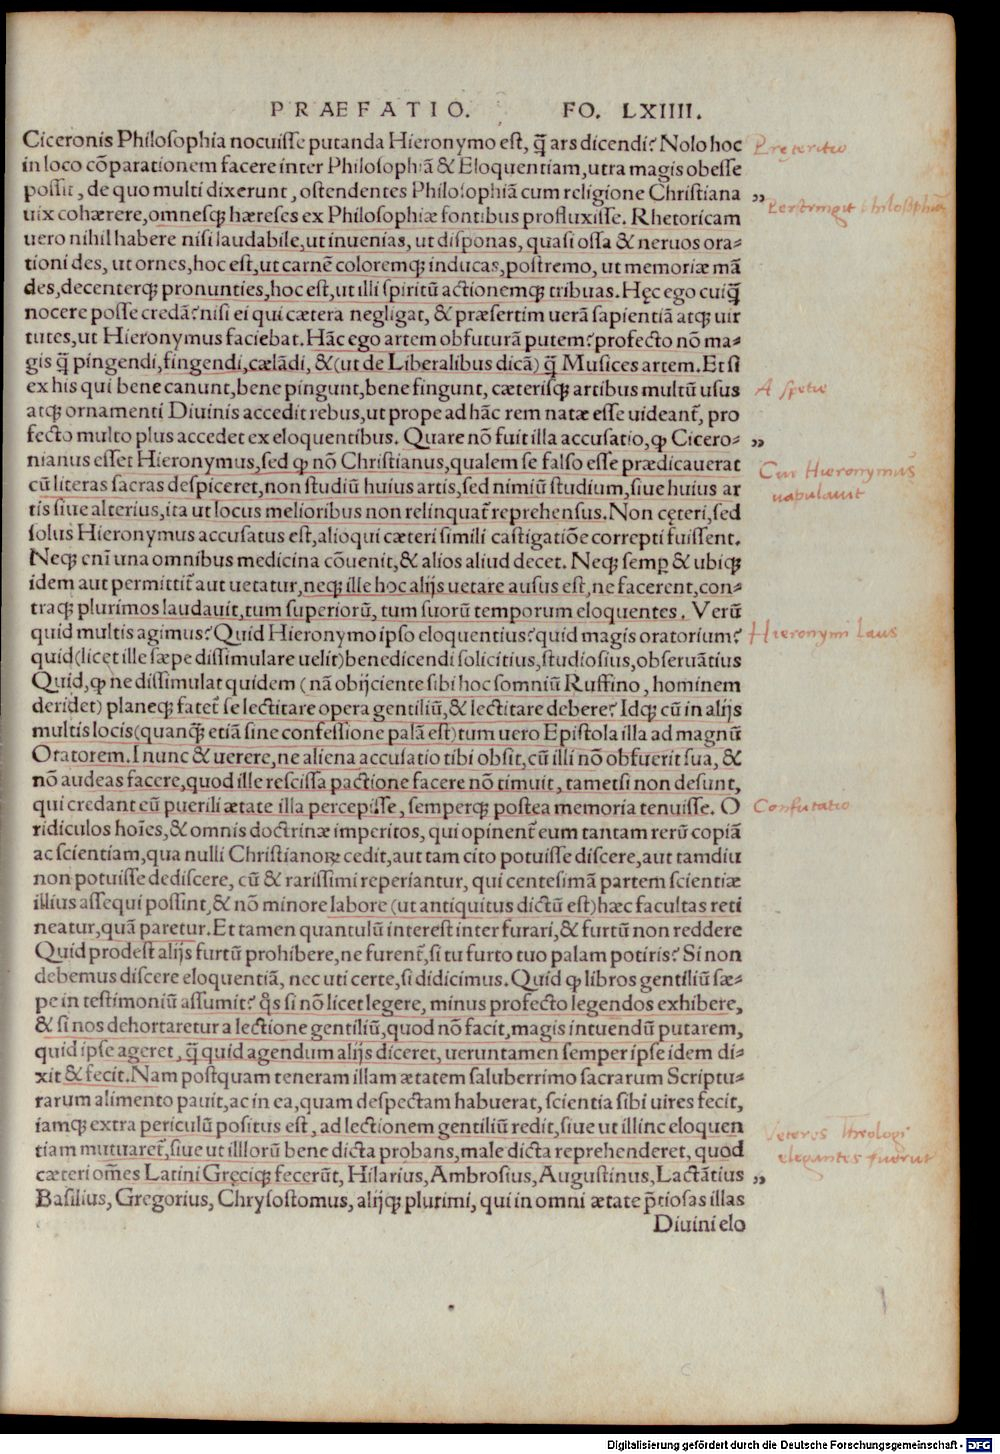 PRAEFATIO. FO. LXIIII.
Ciceronis Philosophia nocuisse putanda Hieronymo est, q̃ ars dicendi? Nolo hoc
in loco cõparationem facere inter Philosophiã & Eloquentiam, utra magis obesse
possit, de quo multi dixerunt, ostendentes Philosophiã cum religione Christiana
uix cohærere, omnesq; hæreses ex Philosophiæ fontibus profluxisse. Rhetoricam
uero nihil habere nisi laudabile, ut inuenias, ut disponas, quasi ossa & neruos ora-
tioni des, ut ornes, hoc est, ut carnẽ coloremq; inducas, postremo, ut memoriæ mã
des, decenterq; pronunties, hoc est, ut illi spiritũ actionemq; tribuas. Hęc ego cuiq̃
nocere posse credã? nisi ei qui cætera negligat, & præsertim uerã sapientiã atq; uir
tutes, ut Hieronymus faciebat. Hãc ego artem obfuturã putem? profecto nõ ma-
gis q̃ pingendi, fingendi, cælãdi, & (ut de Liberalibus dicã) q̃ Musices artem. Et si
ex his qui bene canunt, bene pingunt, bene fingunt, cæterisq; artibus multũ usus
atq; ornamenti Diuinis accedit rebus, ut prope ad hãc rem natæ esse uideant̃, pro
fecto multo plus accedet ex eloquentibus. Quare nõ fuit illa accusatio, ꝙ Cicero-
nianus esset Hieronymus, sed ꝙ nõ Christianus, qualem se falso esse prædicauerat
cũ literas sacras despiceret, non studiũ huius artis, sed nimiũ studium, siue huius ar
tis siue alterius, ita ut locus melioribus non relinquat̃ reprehensus. Non cęteri, sed
solus Hieronymus accusatus est, alioqui cæteri simili castigatiõe correpti fuissent.
Neq; enĩ una omnibus medicina cõuenit, & alios aliud decet. Neq; semp̱ & ubiq;
idem aut permittit̃ aut uetatur, neq; ille hoc alijs uetare ausus est, ne facerent, con-
traq; plurimos laudauit, tum superiorũ, tum suorũ temporum eloquentes. Verũ
quid multis agimus? Quid Hieronymo ipso eloquentius? quid magis oratorium?
quid (licet ille sæpe dissimulare uelit) benedicendi solicitius, studiosius, obseruãtius
Quid, ꝙ ne dissimulat quidem (nã obijciente sibi hoc somniũ Ruffino, hominem
deridet) planeq; fatet̃ se lectitare opera gentiliũ, & lectitare debere? Idq; cũ in alijs
multis locis (quanq̃ etiã sine confessione palã est) tum uero Epistola illa ad magnũ
Oratorem. I nunc & uerere, ne aliena accusatio tibi obsit, cũ illi nõ obfuerit sua, &
nõ audeas facere, quod ille rescissa pactione facere nõ timuit, tametsi non desunt,
qui credant eũ puerili ætate illa percepisse, semperq; postea memoria tenuisse. O
ridiculos hoĩes, & omnis doctrinæ imperitos, qui opinent̃ eum tantam rerũ copiã
ac scientiam, qua nulli Christianoꝝ cedit, aut tam cito potuisse discere, aut tamdiu
non potuisse dediscere, cũ & rarissimi reperiantur, qui centesimã partem scientiæ
illius assequi possint, & nõ minore labore (ut antiquitus dictũ est) hæc facultas reti
neatur, quã paretur. Et tamen quantulũ interest inter furari, & furtũ non reddere
Quid prodest alijs furtũ prohibere, ne furent̃, si tu furto tuo palam potiris? Si non
debemus discere eloquentiã, nec uti certe, si didicimus. Quid ꝙ libros gentiliũ sæ-
pe in testimoniũ assumit? q̃s si nõ licet legere, minus profecto legendos exhibere,
& si nos dehortaretur a lectione gentiliũ, quod nõ facit, magis intuendũ putarem,
quid ipse ageret, q̃ quid agendum alijs diceret, ueruntamen semper ipse idem di-
xit & fecit. Nam postquam teneram illam ætatem saluberrimo sacrarum Scriptu-
rarum alimento pauit, ac in ea, quam despectam habuerat, scientia sibi uires fecit,
iamq; extra periculũ positus est, ad lectionem gentiliũ redit, siue ut illinc eloquen
tiam mutuaret̃, siue ut illlorũ bene dicta probans, male dicta reprehenderet, quod
cæteri om̃es Latini Gręciq; fecerũt, Hilarius, Ambrosius, Augustinus, Lactãtius
Basilius, Gregorius, Chrysostomus, alijq; plurimi, qui in omni ætate p̃tiosas illas
Diuini elo
Pręteritio
" Perstringit philosophiã
A specie
"
Cur Hieronymus
uapulauit
Hieronymi Laus
Confutatio
Veteres Theologi
elegantes fuerũt
"
Digitalisierung gefördert durch die Deutsche Forschungsgemeinschaft - DFG